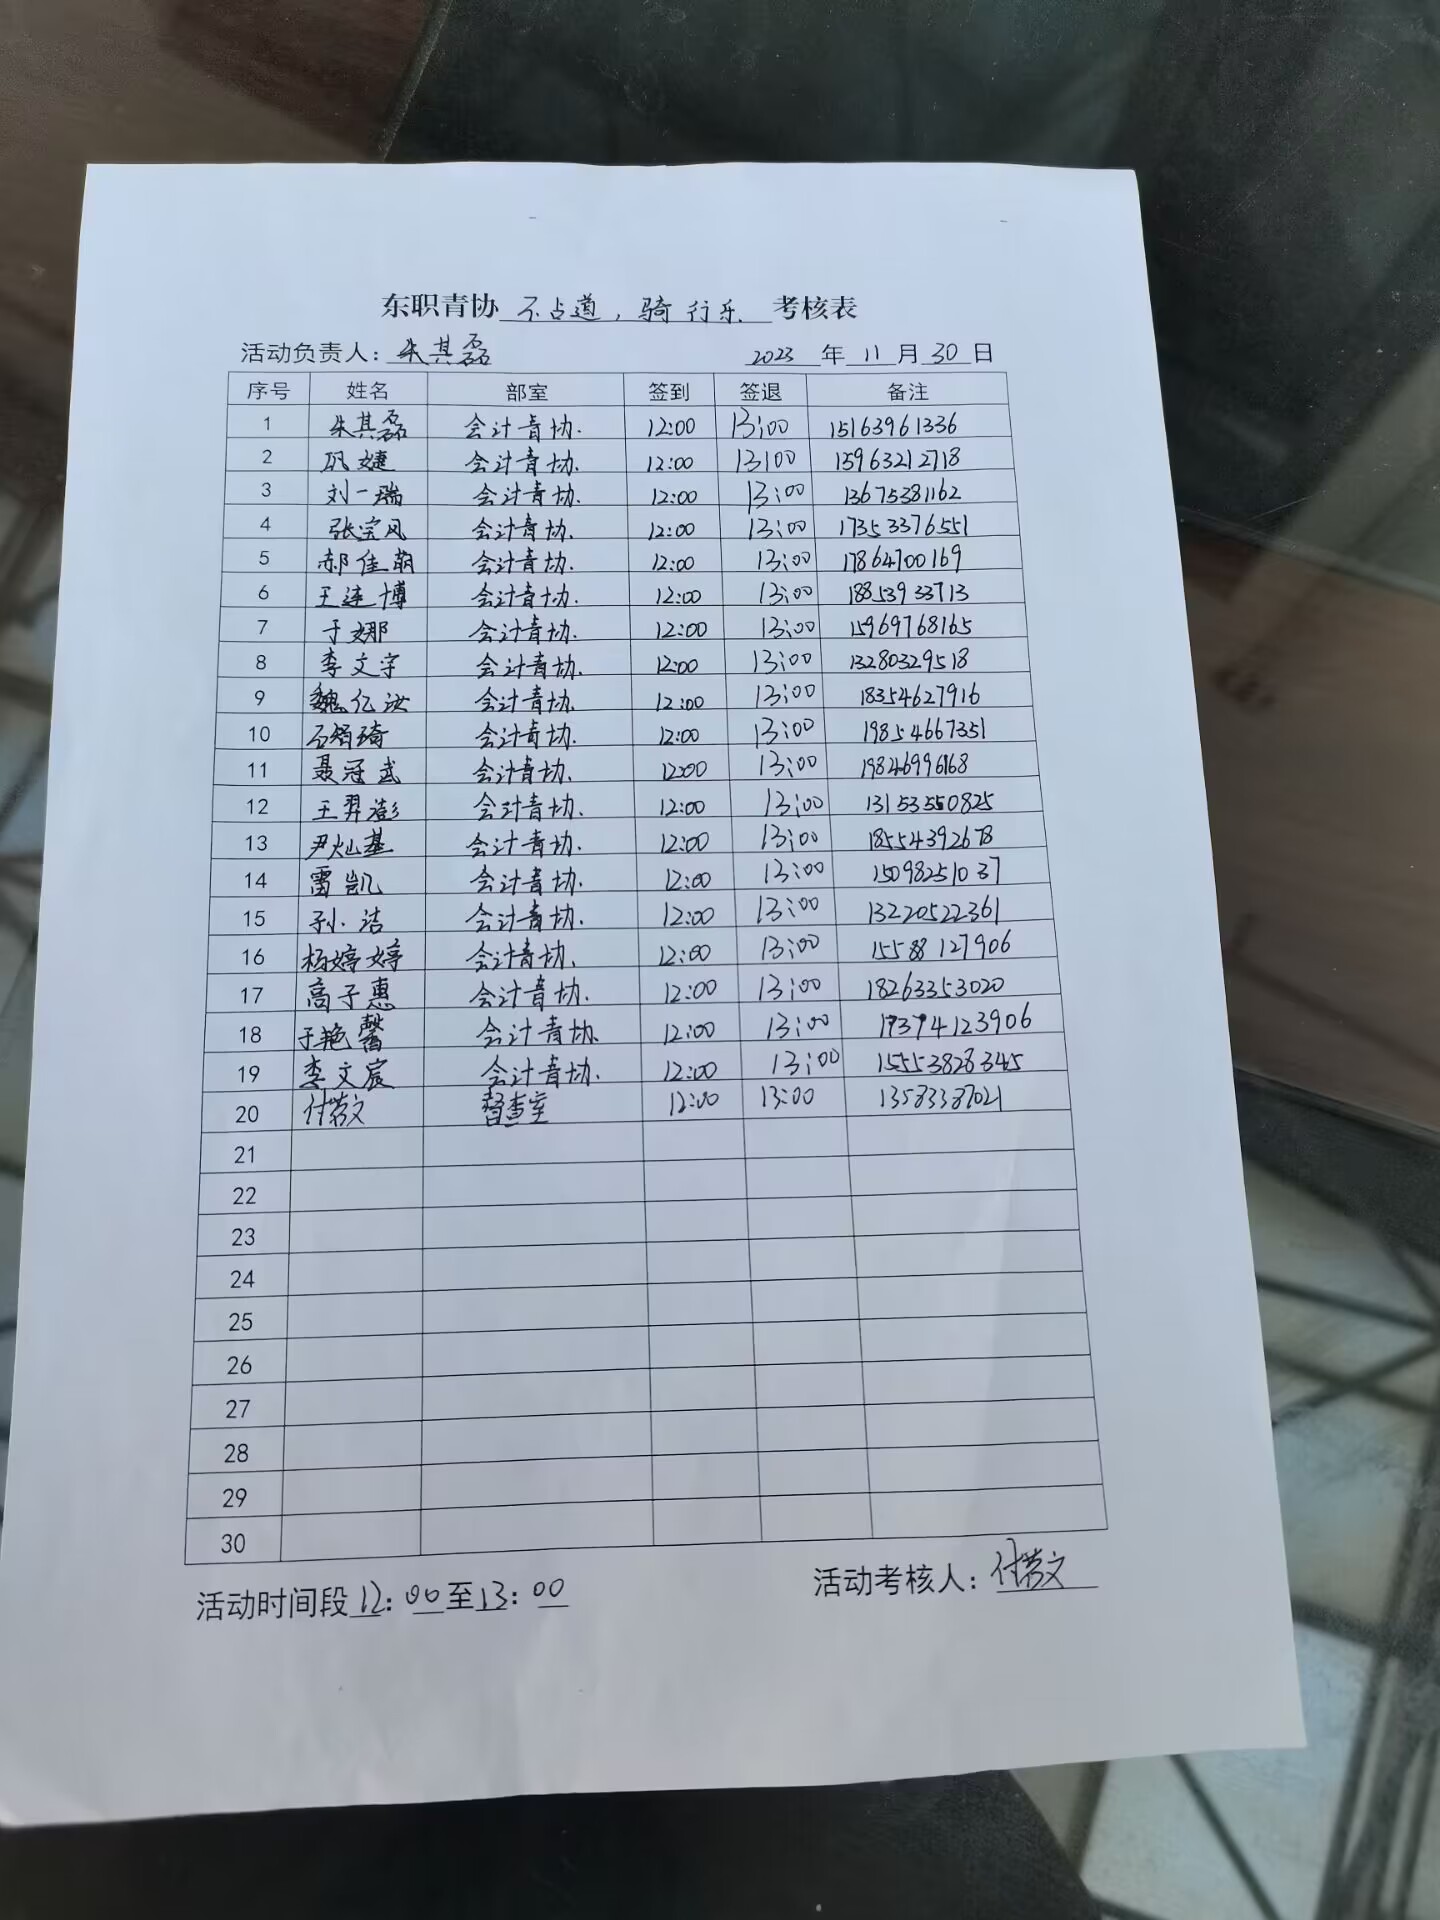 东职青协 不占道，骑行乐 考核表
活动负责人：朱其磊 2023 年 11 月 30 日
序号 姓名 部室 签到 签退 备注
1 朱其磊 会计青协. 12:00 13:00 15163961336
2 巩婕 会计青协. 12:00 13:00 15963212718
3 刘一瑞 会计青协. 12:00 13:00 13675381162
4 张宝风 会计青协. 12:00 13:00 17353376551
5 郝佳萌 会计青协. 12:00 13:00 17864700169
6 王连博 会计青协. 12:00 13:00 18853933713
7 于娜 会计青协. 12:00 13:00 15969768165
8 李文宇 会计青协. 12:00 13:00 13280329518
9 魏亿汝 会计青协. 12:00 13:00 18354627916
10 石绍琦 会计青协. 12:00 13:00 19854667351
11 聂冠武 会计青协. 12:00 13:00 19846996168
12 王羿澎 会计青协. 12:00 13:00 13153550825
13 尹灿基 会计青协. 12:00 13:00 18554392678
14 雷凯 会计青协. 12:00 13:00 15098251037
15 孙洁 会计青协. 12:00 13:00 13220522361
16 杨婷婷 会计青协. 12:00 13:00 15588127906
17 高子惠 会计青协. 12:00 13:00 18263353020
18 于艳馨 会计青协. 12:00 13:00 17374123906
19 李文宸 会计青协. 12:00 13:00 15553828345
20 督查室 12:00 13:00 13583387021
21
22
23
24
25
26
27
28
29
30
活动时间段 12：00 至 13：00 活动考核人：